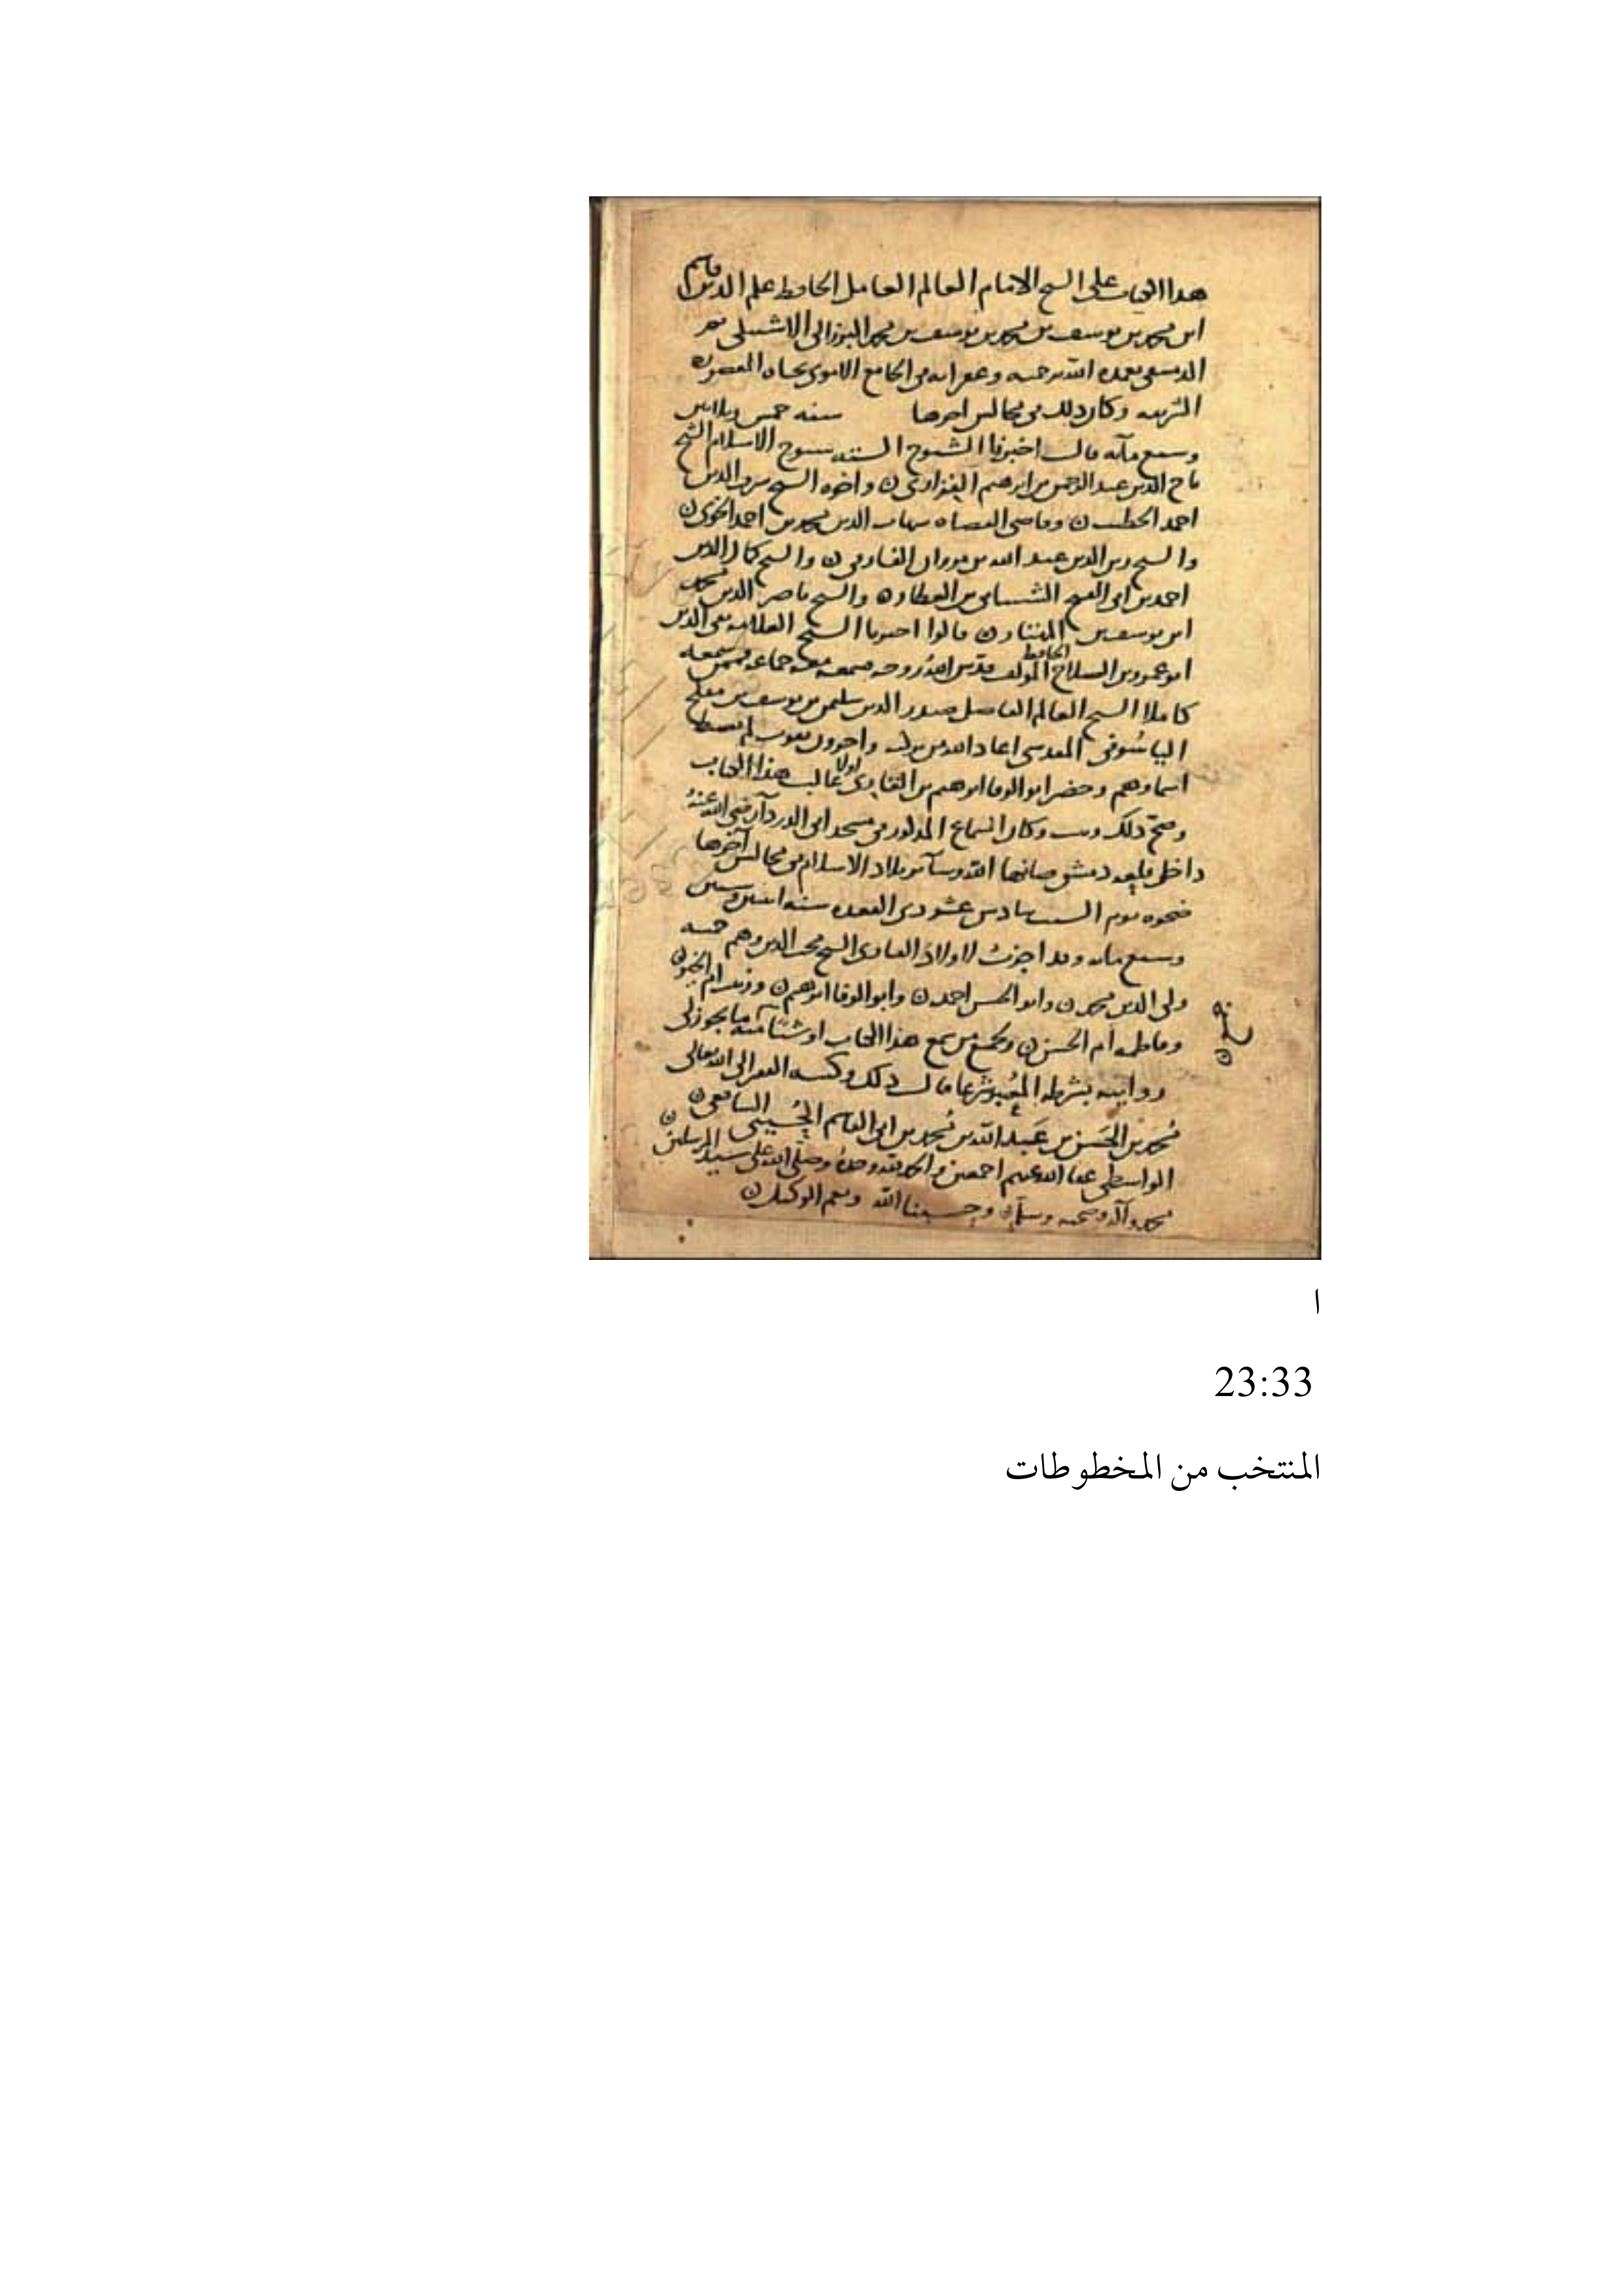 هذا الكتاب على الشيخ الامام العالم العامل الحافظ علم الدين قاسم
ابن محمد بن يوسف بن محمد بن يوسف بن محمد البرزالى الاشبيلى ثم
الدمشقى تغمده الله برحمته وغفرانه فى الجامع الاموى تجاه المقصورة
التربه وكان ذلك فى مجالس اخرها سنه خمس وثلاثين
وسبع مآئه قال اخبرنا الشيوخ الستة شيوخ الاسلام الشيخ
تاج الدين عبد الرحمن بن ابرهيم الفزارى ن واخوه الشيخ شرف الدين
احمد الخطيب ن وقاضى القضاه شهاب الدين محمد بن احمد الخوى ن
والشيخ زين الدين عبد الله بن مروان الفارقى ن والشيخ كمال الدين
احمد بن ابى الفتح الشيبانى بن العطار ن والشيخ ناصر الدين محمد
ابن يوسف بن المهتار ن قالوا اخبرنا الشيخ العلامه تقى الدين
ابو عمرو بن الصلاح الحافظ المولف قدس الله روحه فسمعه معه جماعه فممن سمعه
كاملا الشيخ العالم الفاضل صدر الدين سليمن بن يوسف بن مفلح
الياسُوفى المقدسى اعاد الله من بركته واخرون بفوت لم تضبط
اسماوهم وحضر ابو الوفا ابرهيم بن اولا غالب هذا الكتاب
وصح ذلك وثبت وكان السماع المذكور فى مسجد ابى الدردآء رضى الله عنهُ
داخل قلعه دمشق صانها الله وسآئر بلاد الاسلام فى مجالس آخرها
ضحوه يوم السبت سادس عشر ذى القعده سنه اثنين وستين
وسبع مائه وقد اجزت لاولاد الشيخ محب الدين وهم خمسه
ولى الدين محمد ن وابو الحسن احمد ن وابو الوفا ابرهيم ن وزينب ام الخير ن
وفاطمه ام الحسن ن ولجميع من سمع هذا الكتاب او شيئًا منه ما يجوز لى
روايته بشرطه المعُتبر شرعا قال ذلك وكتبه الفقير الى الله تعالى
مُحمد بن الحَسَن بن عَبد الله بن مُحمد بن ابى القاسم الحُسينى الشافعى ن
الواسطى عفا الله عنهم اجمعين والحمد لله وحدهُ وصلى الله على سيد المرسلين ن
محمد وآله وصحبه وسلم ن وحسبنا الله ونعم الوكيل ن
ا
23:33
المنتخب من المخطوطات